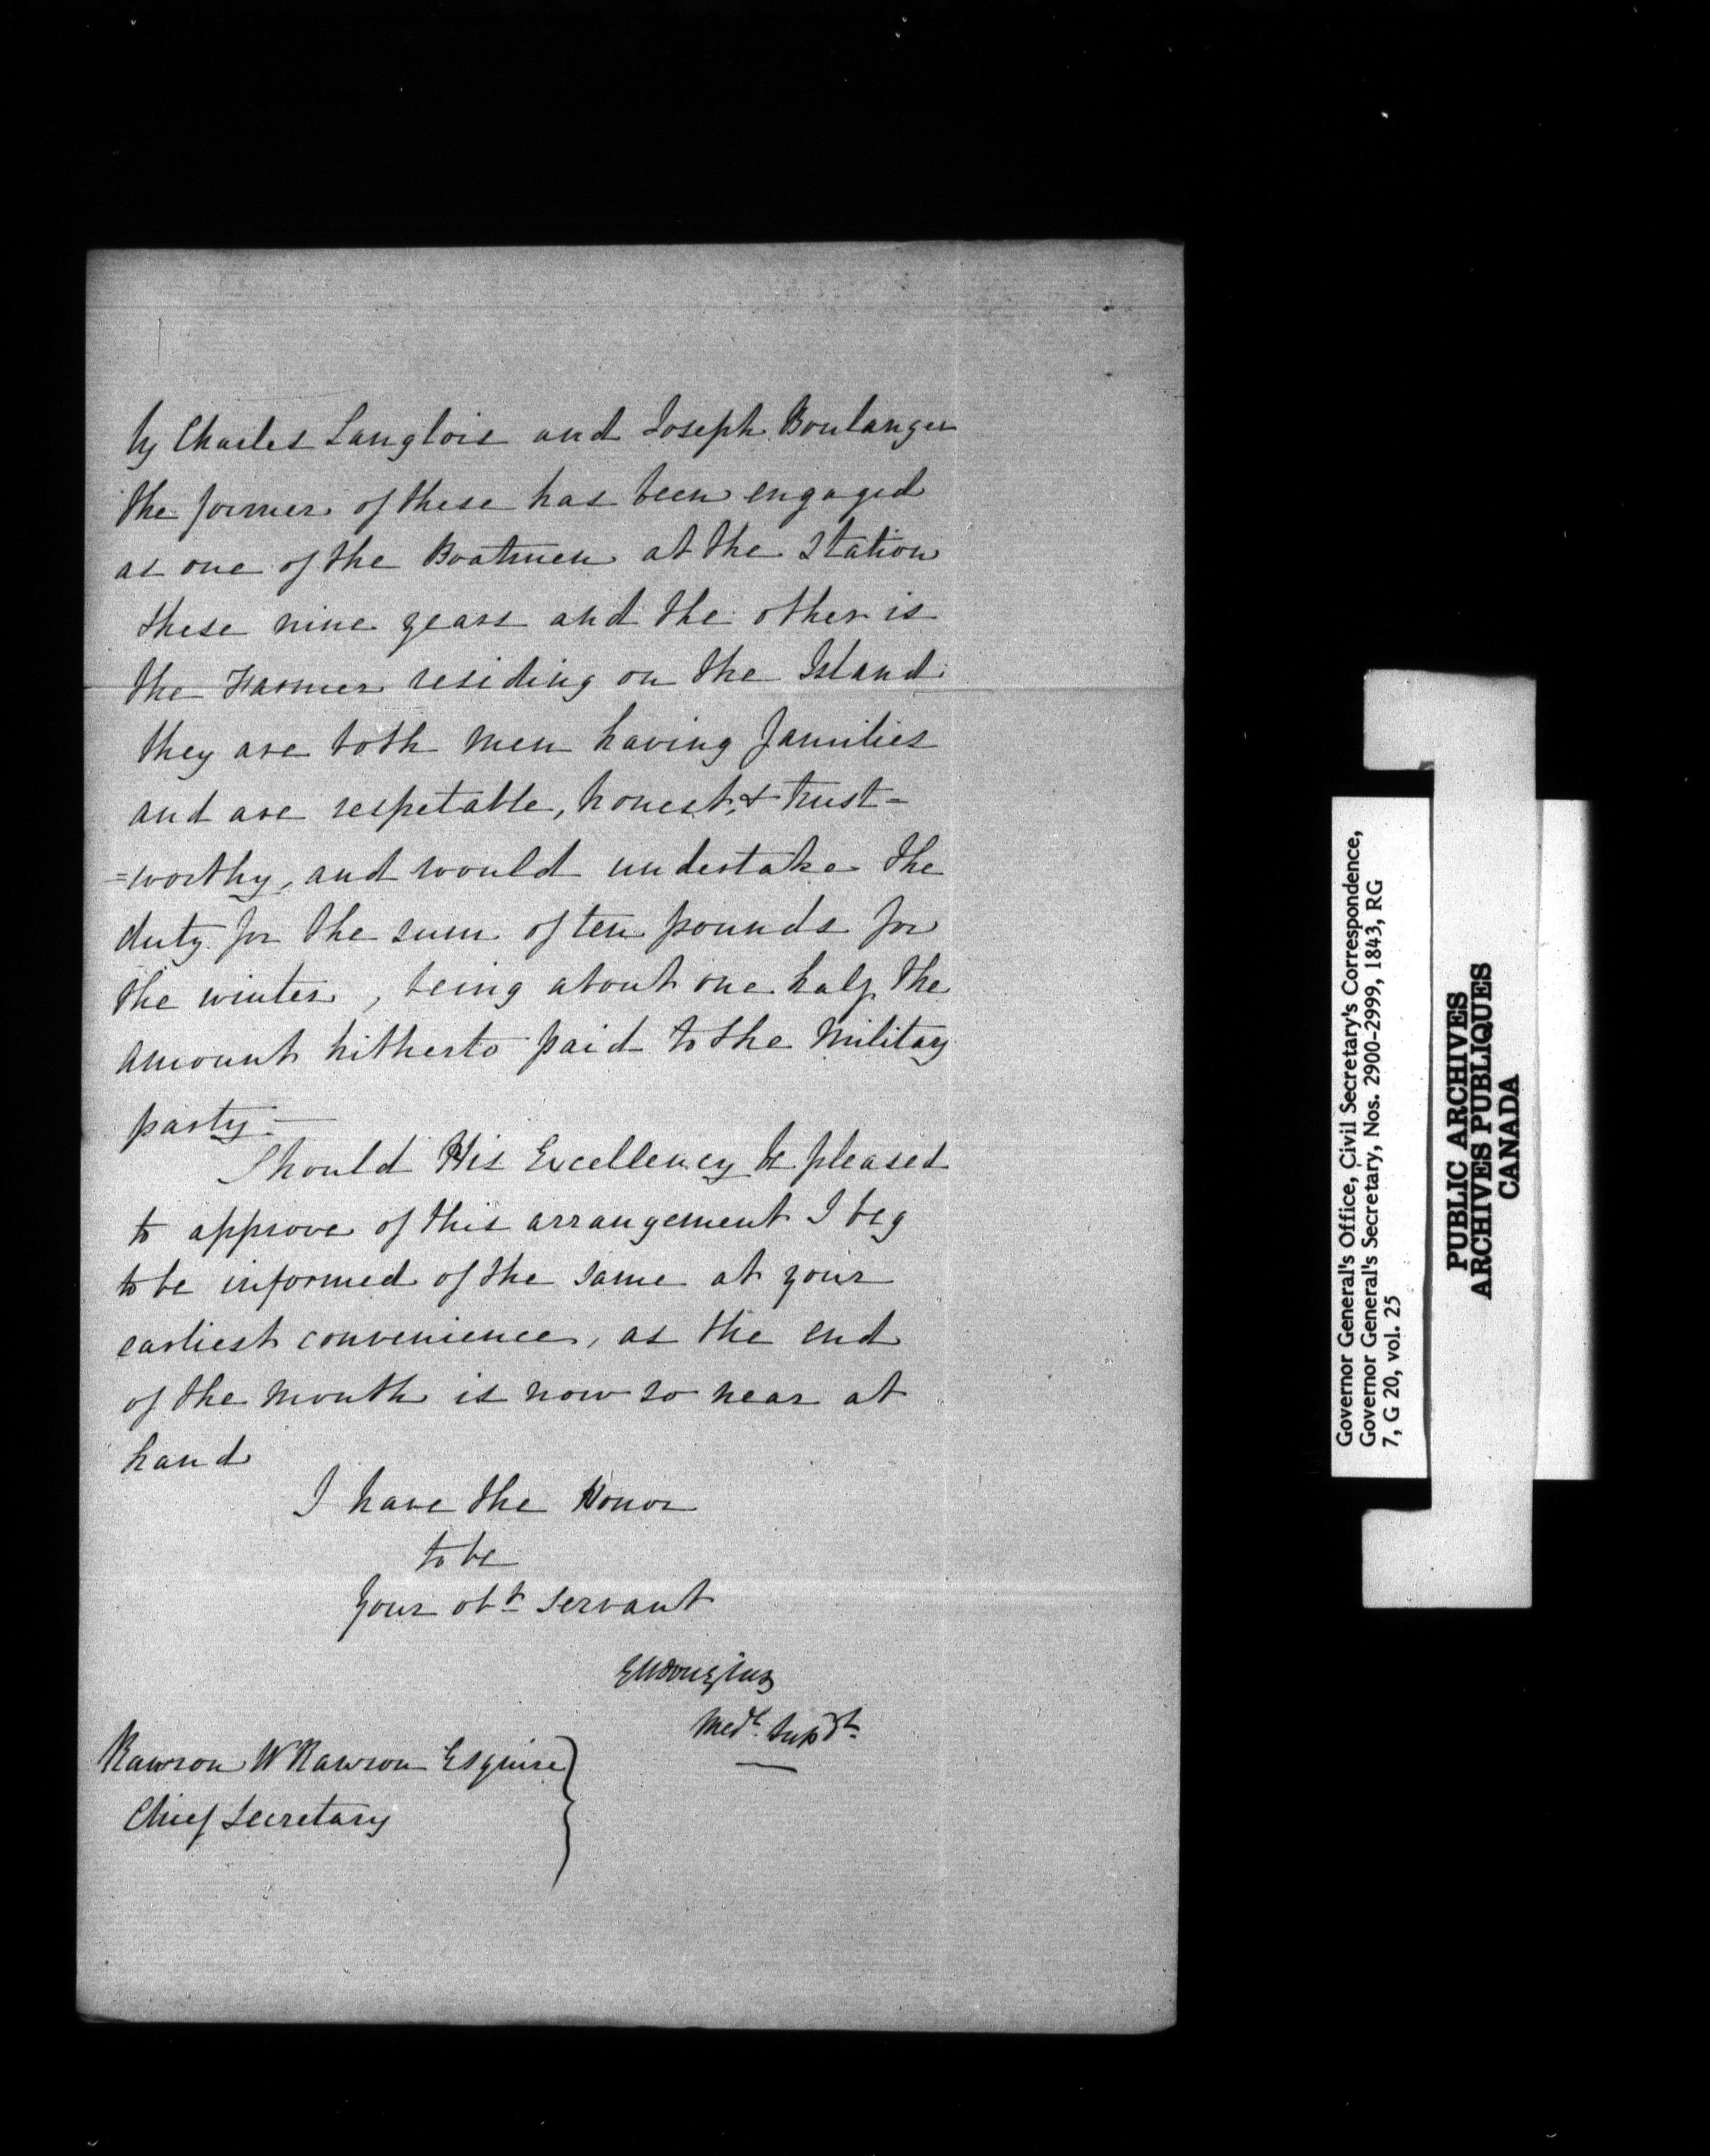 by Charles Langlois and Joseph Boulanger
the former of these has been engaged
as one of the Boatmen at the Station
these nine years and the other is
the Farmer residing on the Island
they are both men having families
and are respetable, honest, & trust=
=worthy, and would undertake the
duty for the sum of ten pounds for
the winter, being about one half the
amount hitherto paid to the Military
party.—
Should His Excellency be pleased
to approve of this arrangement I beg
to be informed of the same at your
earliest convenience, as the end
of the month is now so near at
hand
I have the Honor
to be
Your obt servant
GMDouglas
Medl. Supdt.
Rawson W Rawson Esquire
Chief Secretary
Governor General's Office, Civil Secretary's Correspondence,
Governor General's Secretary, Nos. 2900-2999, 1843, RG
7, G 20, vol. 25
PUBLIC ARCHIVES
ARCHIVES PUBLIQUES
CANADA